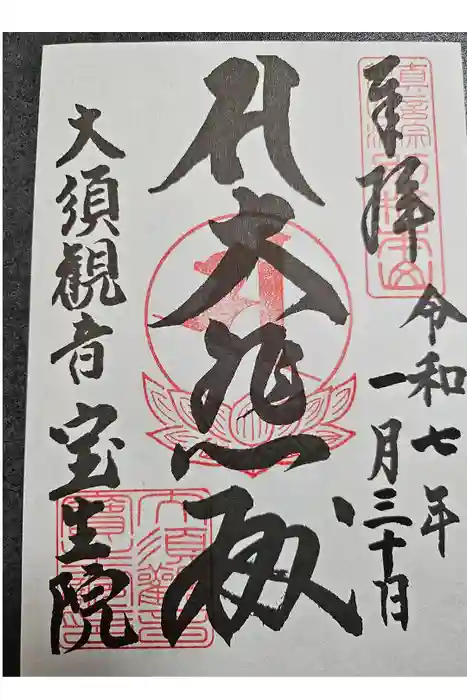 奉拝
令和七年
一月三十日
大悲殿
大須観音
宝生院